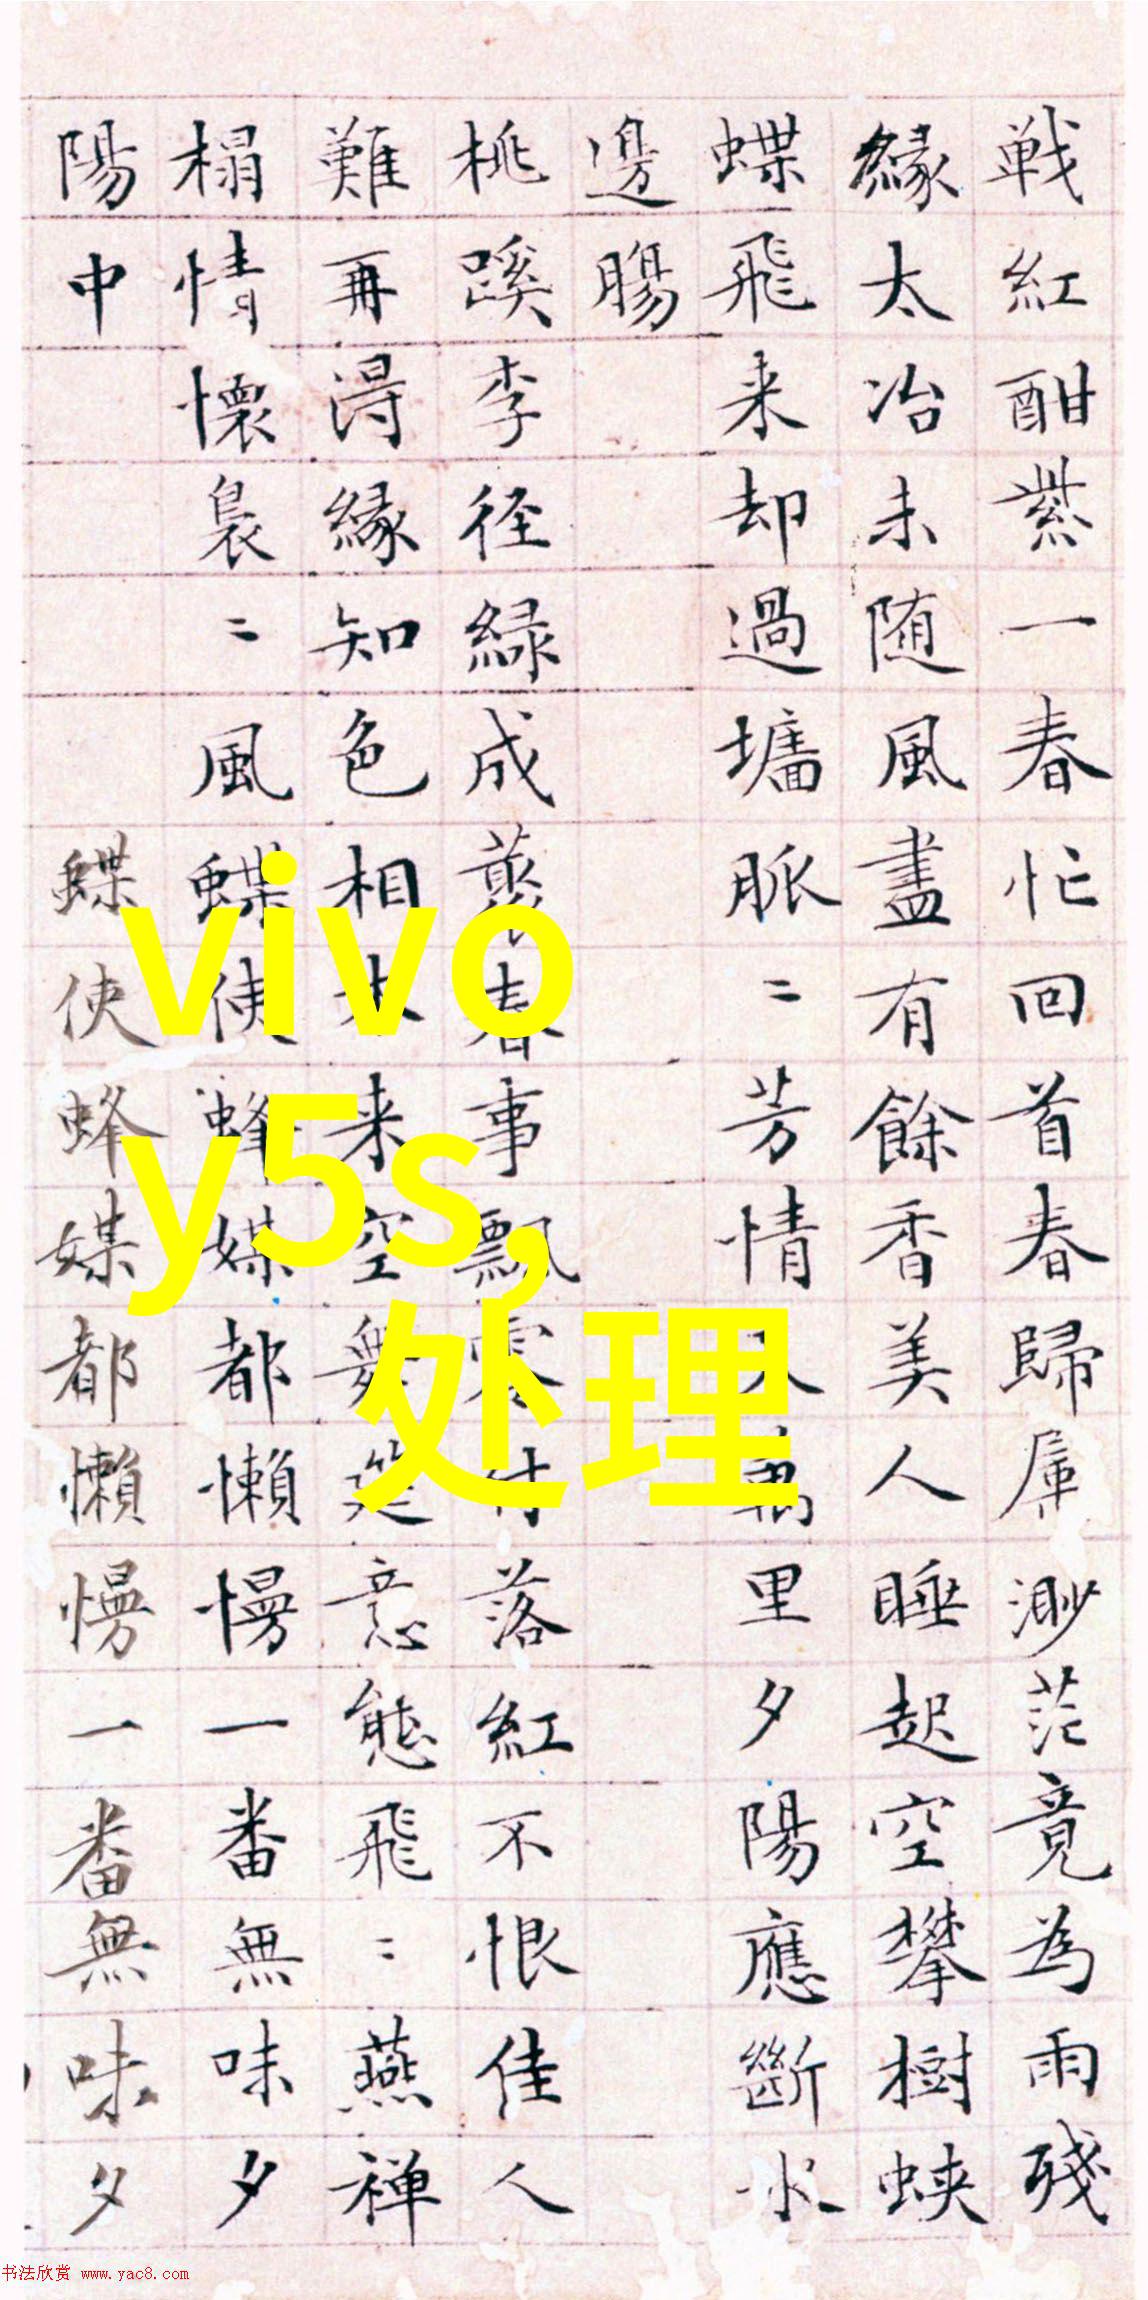 戦紅酣紫一春忙回首春歸屋渺茫竟為雨殘
緣太冶未随風盡有餘香美人睡起空攀樹蛺
蝶飛来却過墻脈〻芳情天萬里夕陽應斷水
邊腸
桃蹊李径緑成蔭春事飄零付落紅不恨佳人
難再淂緣知色相本来空舞筵意態飛〻燕禅
榻情懷裊〻風蝶使蜂媒都懶慢一番無味夕
陽中
蝶使蜂媒都懶慢一番無味夕
vivo
y5s,
处理
书法欣赏 www.yac8.com